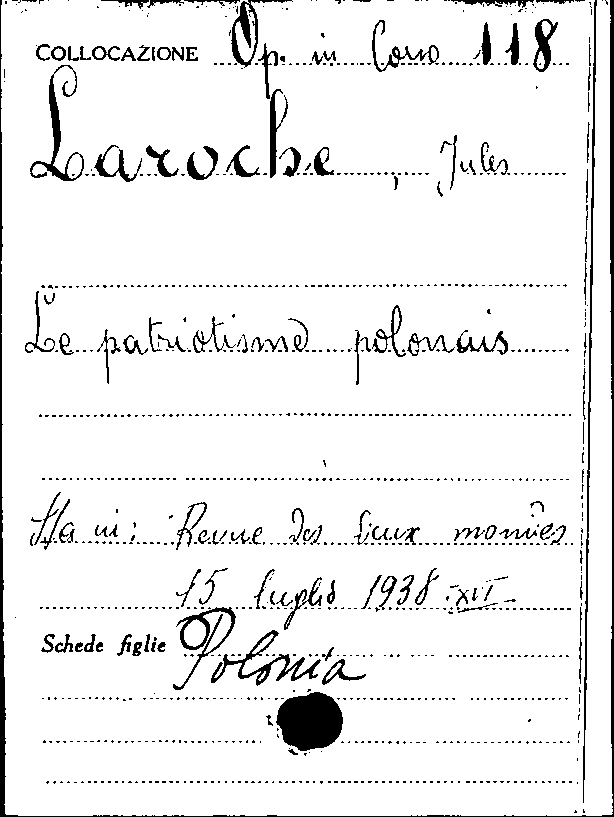 COLLOCAZIONE Op. in Corso 118
Laroche, Jules
Le patriotisme polonais
Sta in: Revue des deux mondes
15 luglio 1938-XVI
Schede figlie Polonia